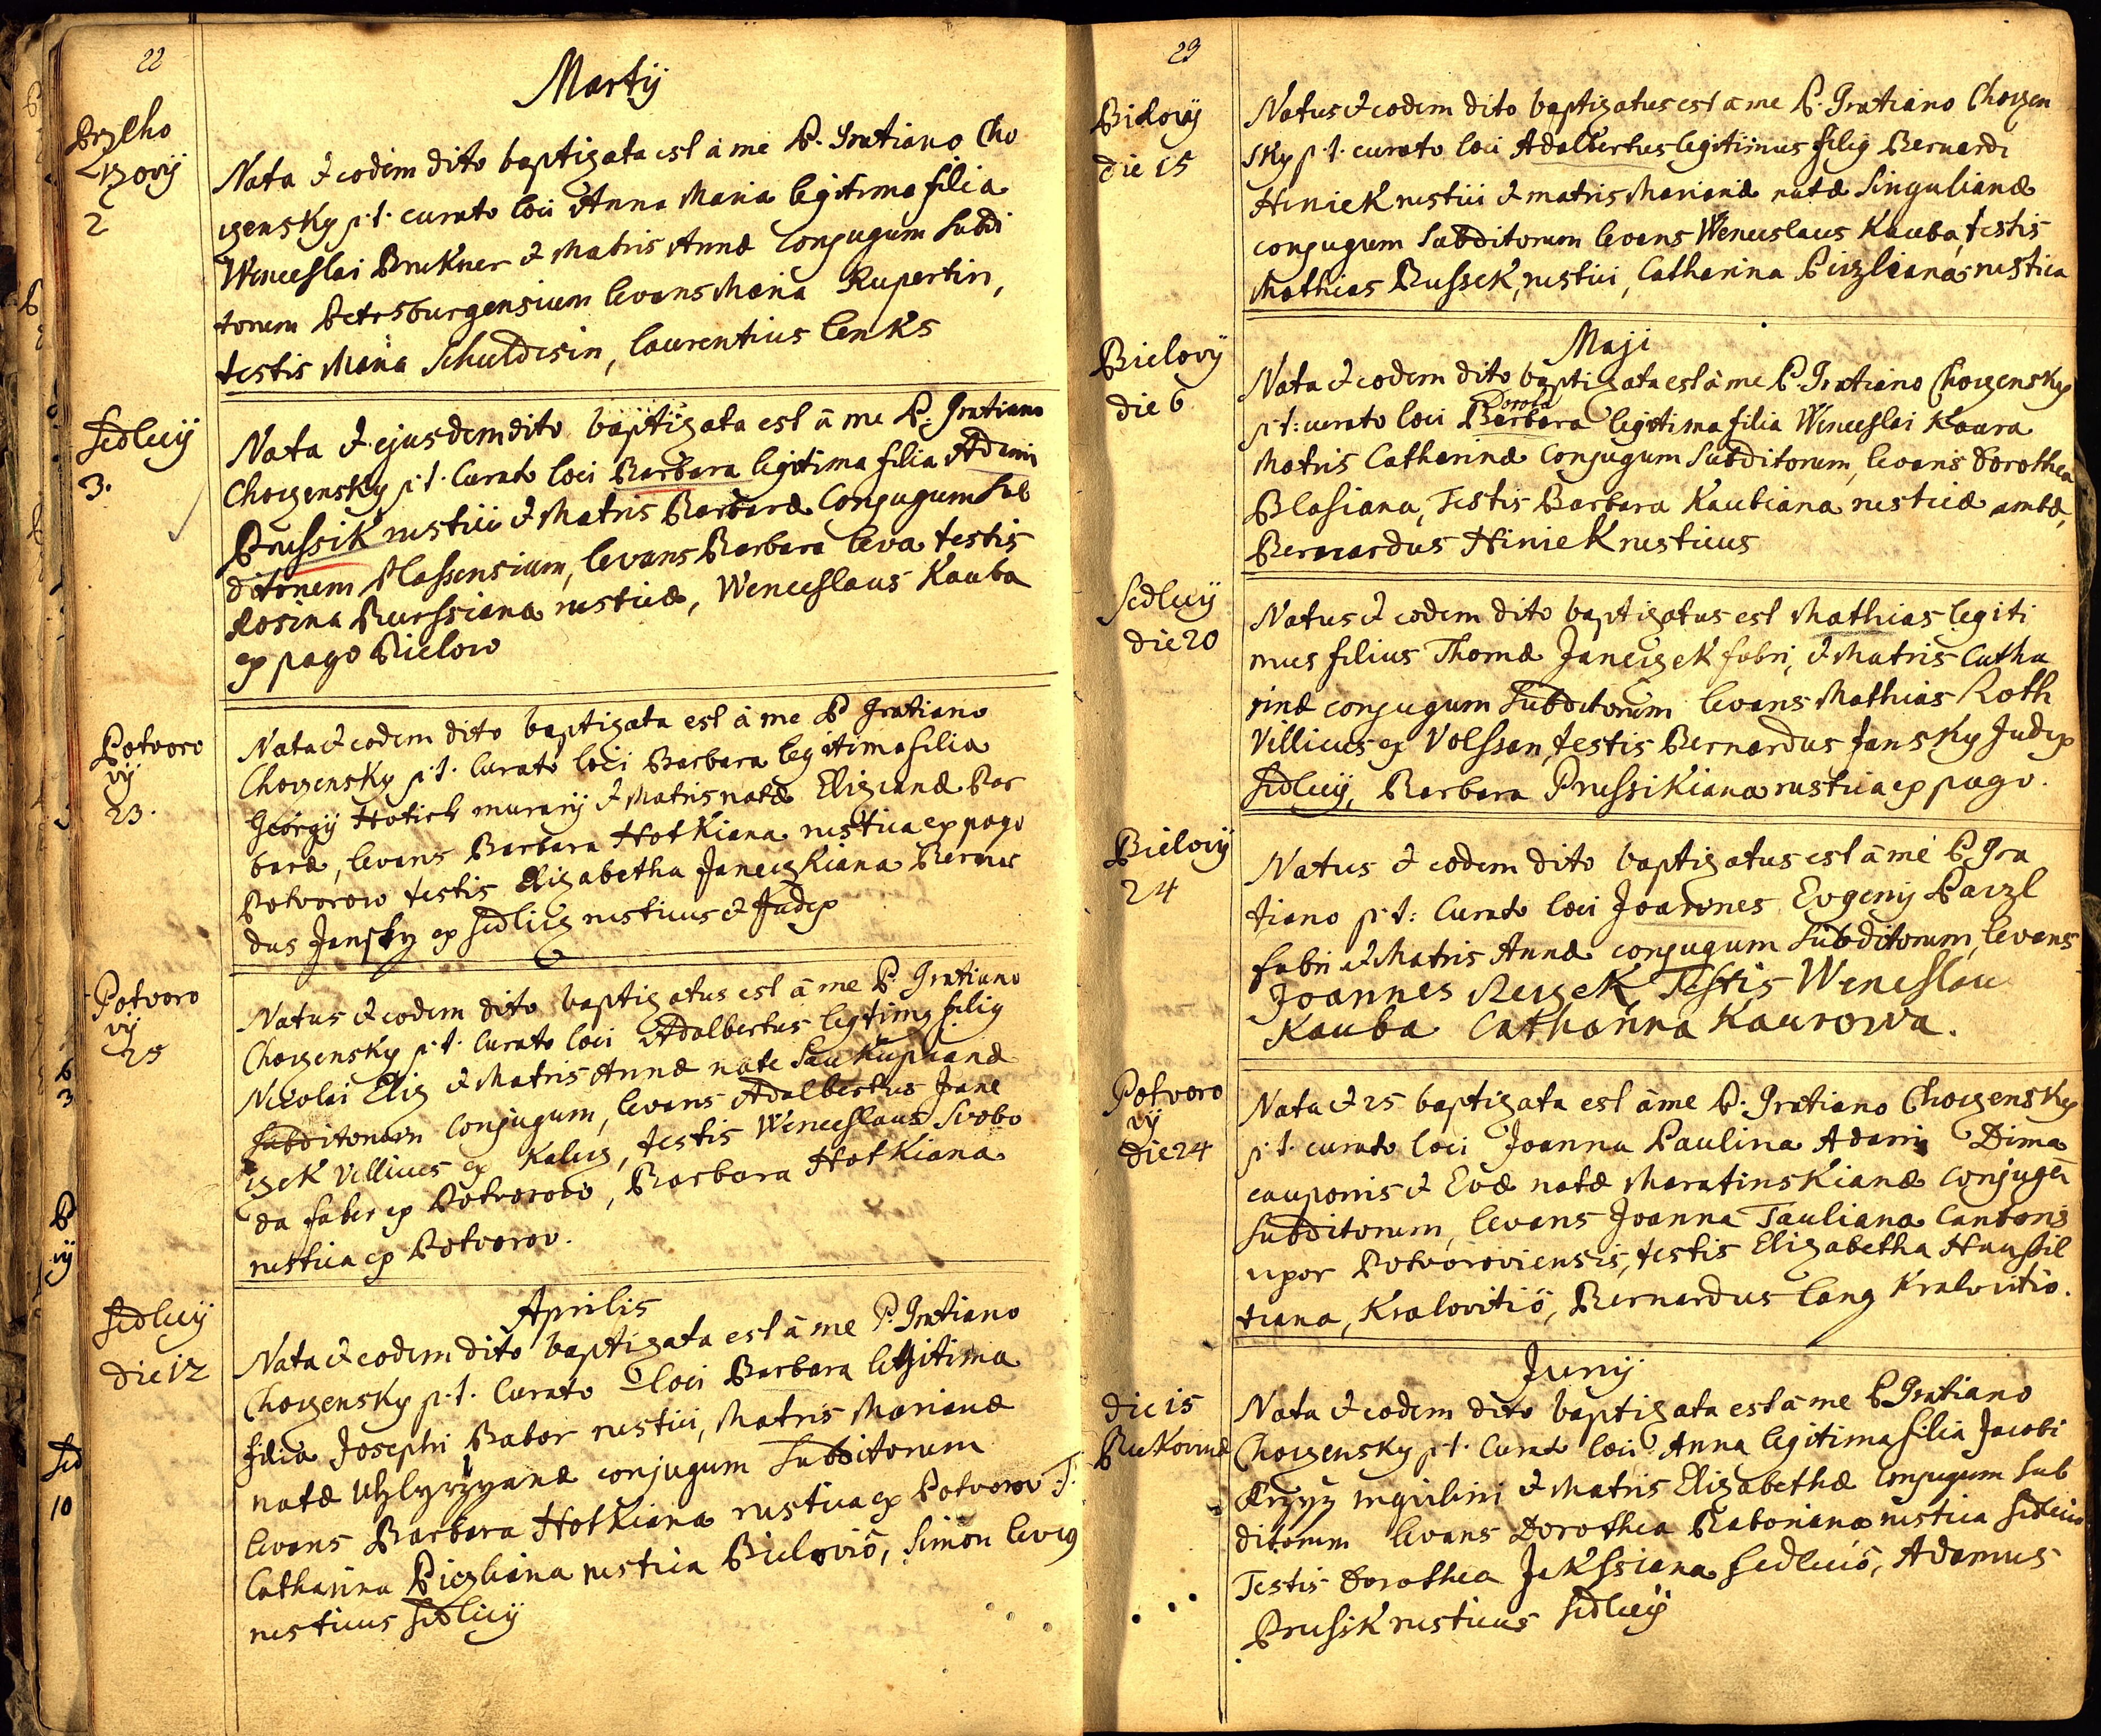 22
Martij
Przeho
rzovij
2
Nata & eodem dito baptizata est à me P. Gratiano Cho
rzensky p.t. curato loci Anna Maria legitima filia
Wenceslai Brukner & Matris Annæ Conjugum Subdi
torum Petrsburgensium levans Maria Rupertin,
testis Maria Schuldesin, laurentius lenks
Sedlecij
3.
Nata & ejusdem dito baptizata est à me P. Gratiano
Chorzensky p.t. Curato loci Barbara legitima filia Adami
Prussik rustici & Matris Barbaræ Conjugum Sub
ditorum Plassensium, levans Barbara leva testis
Rosina Burssiana rusticæ, Wenceslaus Kauba
ex pago Bielow
Potvoro
vij
23.
Nata & eodem dito baptizata est à me P Gratiano
Chorzensky p.t. Curato loci Barbara legitima filia
Georgij Hotich murarij & Matris natæ Elizianæ Bar
baræ, levans Barbara Hotkiana rustica ex pago
Potvorow testis Elizabetha Janeczkiana Bernar
dus Jansky ex Sedlicz rusticus & Judex
Potvoro
vij
25
Natus & eodem dito baptizatus est à me P. Gratiano
Chorzensky p.t. Curato loci Adalbertus legtimg filig
Nicolai Eliz & Matris Annæ nate Saukupianæ
Subditorum Conjugum, levans Adalbertus Jane
czek Villicus ex Kalecz, testis Wenceslaus Svobo
da faber ex Potvorow, Barbara Hotkiana
rustica ex Potvorov.
Aprilis
Sedlecij
die 12
Nata & eodem dito baptizata est à me P. Gratiano
Chorzensky p.t. Curato loci Barbara legitima
filia Josephi Babor rustici, Matris Marianæ
natæ Uhlyrzyanæ conjugum Subditorum
levans Barbara Hotkiana rustica ex Potvorov T.
Catharina Piczliana rustica Bieloviô, Simon levig
rusticus Sedlicij
23
Bilovij
die 15
Natus & eodem dito baptizatus est à me P. Gratiano Chorzen
sky p.t. curato loci Adalbertus legitimus filig Bernardi
Hiniek rustici & matris Marianæ natæ Singulianæ
conjugum Subditorum levans Wenceslaus Kauba, testis
Mathias Bussek, rustici, Catharina Piczliana rustica
Maji
Bielovij
die 6
Nata & eodem dito baptizata est à me P. Gratiano Chorzensky
Dorota
p.t: curato loci Barbara legitima filia Wenceslai Kaura
Matris Catharinæ Conjugum Subditorum, levans Dorothea
Blasiana, Testis Barbara Kaubiana rusticæ ambæ,
Bernardus Hiniek rusticus
Sedlecij
die 20
Natus & eodem dito baptizatus est Mathias legiti
mus filius Thomæ Janeczek fabri, & Matris Catha
rinæ conjugum Subditorum levans Mathias Roth
Villicus ex Volssan, testis Bernardus Jansky Judex
Sedlecij, Barbara Prussikiana rustica ex pago.
Bielovij
24
Natus & eodem dito baptizatus est à me P. Gra
tiano p.t: Curato loci Joannes Evgenij Paczl
fabri & Matris Annæ conjugum Subditorum, levans
Joannes Reczek, Testis Wenceslau
Kauba Catharina Kaurowa.
Potvoro
vij
die 24
Nata & 25 baptizata est à me P. Gratiano Chorzensky
p.t. curato loci Joanna Paulina Adami Dima
cauponis & Evæ natæ Maratinskianæ Conjugū
Subditorum, levans Joanna Tauliana Cantoris
uxor Potvoroviensis, testis Elizabetha Haussil
tiana, Kralovitiô, Bernardus lang Kralovitio.
Junij
die 15
Bukovinæ
Nata & eodem dito baptizata est à me P Gratiano
Chorzensky p.t. Curato loci Anna legitima filia Jacobi
Krzyz inquilini & Matris Elizabethæ Conjugum Sub
ditorum levans Dorothea Baboriana rustica Sedlecio
Testis Dorothea Jekssiana Sedleciô, Adamus
Prussik rusticus Sedlecij